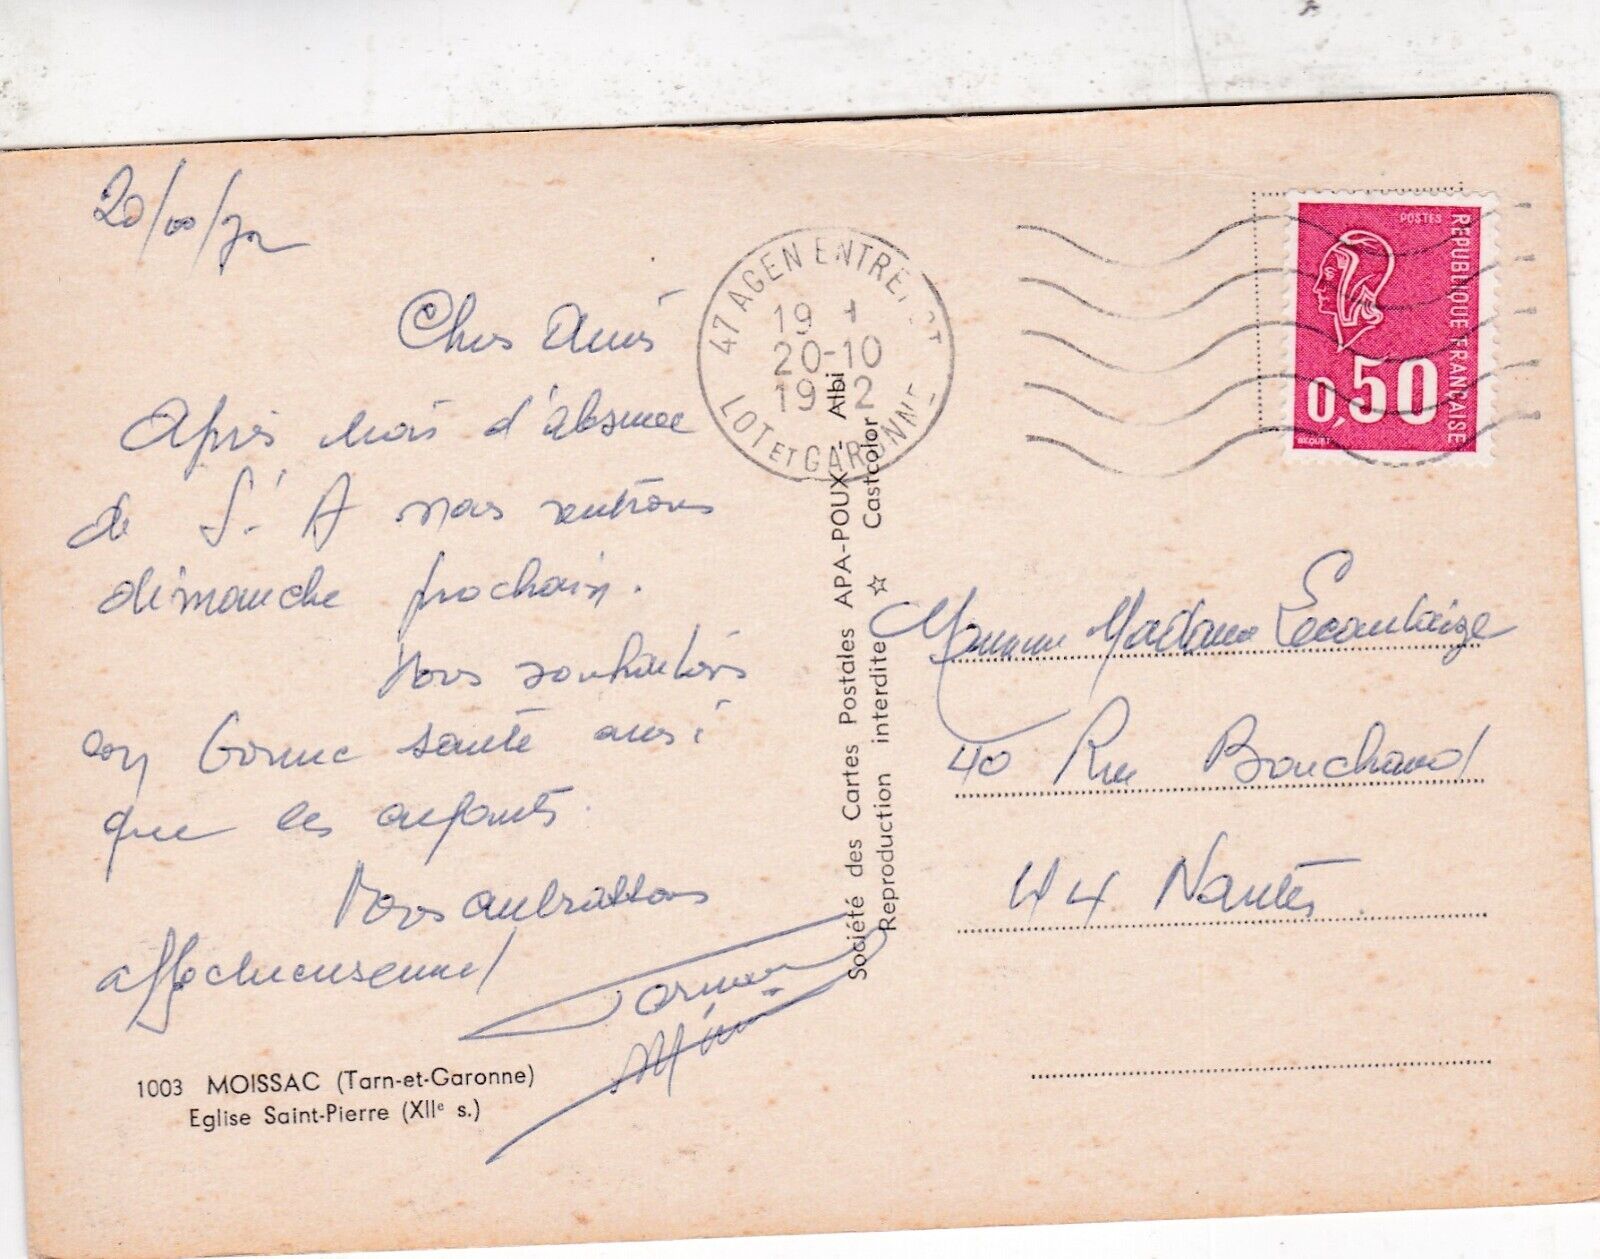 20/10/72
Chers Amis
Après trois d'absence
de S.A nous rentrons
dimanche prochain.
Vous souhaitons
en bonne santé aussi
que les enfants.
Vous embrassons
affectueusement
1003 MOISSAC (Tarn-et-Garonne)
Eglise Saint-Pierre (XIIe s.)
Société des Cartes Postales APA-POUX - Albi
Reproduction interdite ☆ Castcolor
47 AGEN ENTREPOT
19
20-10
19 2
LOT ET GARONNE
POSTES
REPUBLIQUE FRANÇAISE
0,50
BEQUET
Madame
40 Rue Bouchaud
44 Nantes